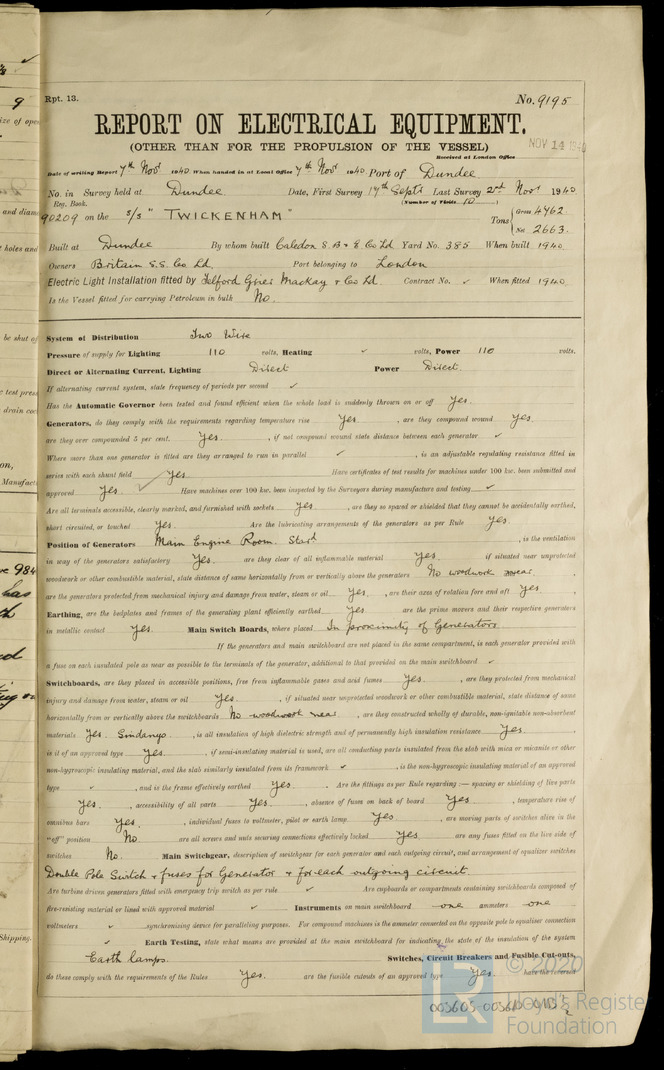 Rpt. 13.
No. 9195
REPORT ON ELECTRICAL EQUIPMENT.
(OTHER THAN FOR THE PROPULSION OF THE VESSEL)
Received at London Office NOV 14 1940
Date of writing Report 7th Novr 1940 When handed in at Local Office 7th Novr 1940 Port of Dundee
No. in Survey held at Dundee. Date, First Survey 17th Sept. Last Survey 2nd Novr 1940
Reg. Book. (Number of Visits 10)
90209 on the s/s "TWICKENHAM" Tons { Gross 4762 Net 2663.
Built at Dundee By whom built Caledon S.B. & E. Co Ld Yard No. 385 When built 1940.
Owners Britain S.S. Co. Ld. Port belonging to London
Electric Light Installation fitted by Telford Grier Mackay & Co Ld. Contract No. ✓ When fitted 1940.
Is the Vessel fitted for carrying Petroleum in bulk No.
System of Distribution Two Wire
Pressure of supply for Lighting 110 volts, Heating ✓ volts, Power 110 volts.
Direct or Alternating Current, Lighting Direct Power Direct.
If alternating current system, state frequency of periods per second ✓
Has the Automatic Governor been tested and found efficient when the whole load is suddenly thrown on or off Yes.
Generators, do they comply with the requirements regarding temperature rise Yes. , are they compound wound Yes.
are they over compounded 5 per cent. Yes. , if not compound wound state distance between each generator ✓
Where more than one generator is fitted are they arranged to run in parallel ✓ , is an adjustable regulating resistance fitted in
series with each shunt field Yes. Have certificates of test results for machines under 100 kw. been submitted and
approved Yes. ✓ Have machines over 100 kw. been inspected by the Surveyors during manufacture and testing ✓
Are all terminals accessible, clearly marked, and furnished with sockets Yes. , are they so spaced or shielded that they cannot be accidentally earthed,
short circuited, or touched Yes. Are the lubricating arrangements of the generators as per Rule Yes.
Position of Generators Main Engine Room. Stard , is the ventilation
in way of the generators satisfactory Yes. are they clear of all inflammable material Yes. if situated near unprotected
woodwork or other combustible material, state distance of same horizontally from or vertically above the generators No woodwork near ,
are the generators protected from mechanical injury and damage from water, steam or oil Yes. , are their axes of rotation fore and aft Yes ,
Earthing, are the bedplates and frames of the generating plant efficiently earthed Yes. are the prime movers and their respective generators
in metallic contact Yes. Main Switch Boards, where placed In proximity of Generators
If the generators and main switchboard are not placed in the same compartment, is each generator provided with
a fuse on each insulated pole as near as possible to the terminals of the generator, additional to that provided on the main switchboard ✓
Switchboards, are they placed in accessible positions, free from inflammable gases and acid fumes Yes. , are they protected from mechanical
injury and damage from water, steam or oil Yes. , if situated near unprotected woodwork or other combustible material, state distance of same
horizontally from or vertically above the switchboards No woodwork near , are they constructed wholly of durable, non-ignitable non-absorbent
materials Yes. Sindanyo. , is all insulation of high dielectric strength and of permanently high insulation resistance Yes. ,
is it of an approved type Yes. , if semi-insulating material is used, are all conducting parts insulated from the slab with mica or micanite or other
non-hygroscopic insulating material, and the slab similarly insulated from its framework ✓ , is the non-hygroscopic insulating material of an approved
type ✓ , and is the frame effectively earthed Yes. . Are the fittings as per Rule regarding :— spacing or shielding of live parts
Yes. , accessibility of all parts Yes. , absence of fuses on back of board Yes , temperature rise of
omnibus bars Yes. , individual fuses to voltmeter, pilot or earth lamp Yes. , are moving parts of switches alive in the
"off" position No. are all screws and nuts securing connections effectively locked Yes. are any fuses fitted on the live side of
switches No. Main Switchgear, description of switchgear for each generator and each outgoing circuit, and arrangement of equalizer switches
Double Pole Switch & fuses for Generator & for each outgoing circuit.
Are turbine driven generators fitted with emergency trip switch as per rule ✓ Are cupboards or compartments containing switchboards composed of
fire-resisting material or lined with approved material ✓ Instruments on main switchboard one ammeters one
voltmeters ✓ synchronising device for paralleling purposes. For compound machines is the ammeter connected on the opposite pole to equaliser connection
✓ Earth Testing, state what means are provided at the main switchboard for indicating the state of the insulation of the system
Earth lamps. Switches, Circuit Breakers and Fusible Cut-outs,
do these comply with the requirements of the Rules Yes. are the fusible cutouts of an approved type Yes. have the reversed
© 2020
Lloyd's Register
Foundation